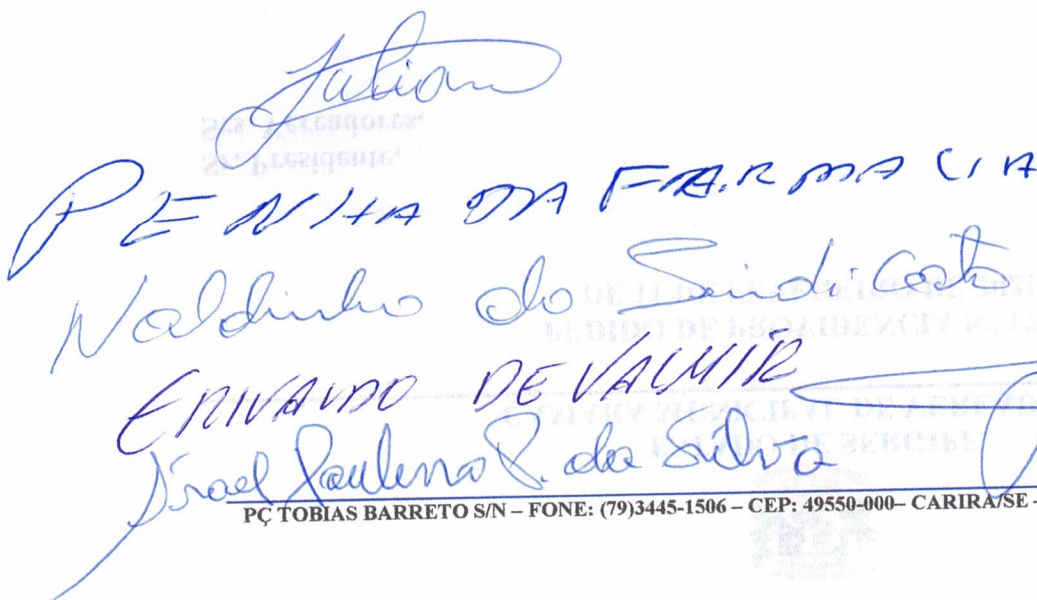 Juliano
PENHA DA FARMACIA
Naldinho do Sindicato
ERIVALDO DE VALMIR
Israel Paulino P. da Silva
PÇ TOBIAS BARRETO S/N – FONE: (79)3445-1506 – CEP: 49550-000– CARIRA/SE –